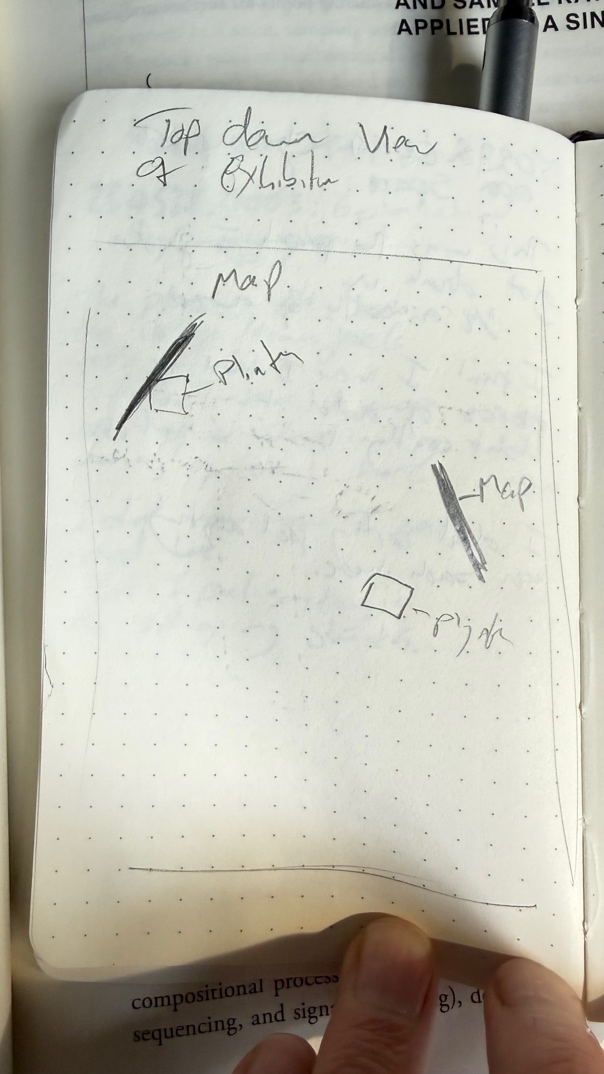 AND SAMPLE RA
APPLIED A SIN
Top down View
of Exhibition
Map
Plinth
Map
Plinth
compositional process
sequencing, and sign g), d